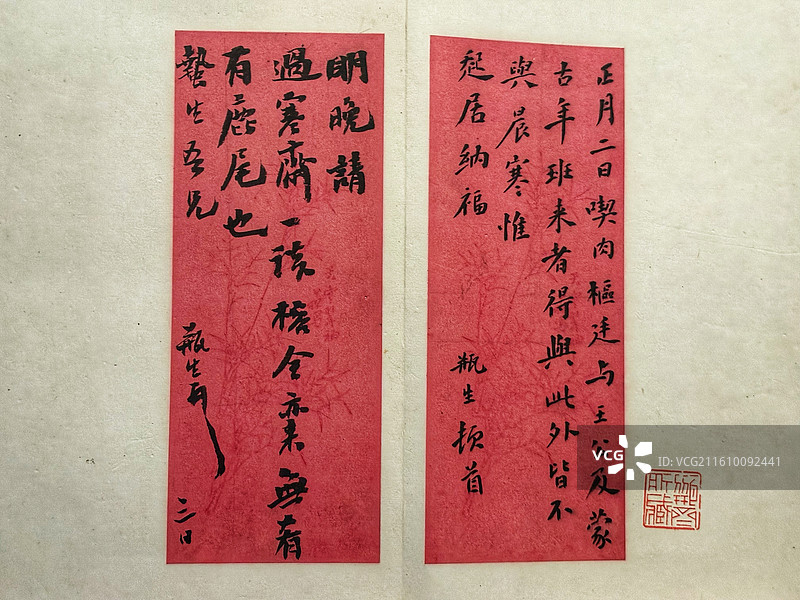 正月二日喫肉樞廷与王公及蒙
古年班来者得與此外皆不
與晨寒惟
起居納福
瓶生頓首
明晚請
過寒齋一談稽令棄無肴
有鹿尾也
蟄生吾兄
瓶生
三日
VCG
ID:VCG211610092441